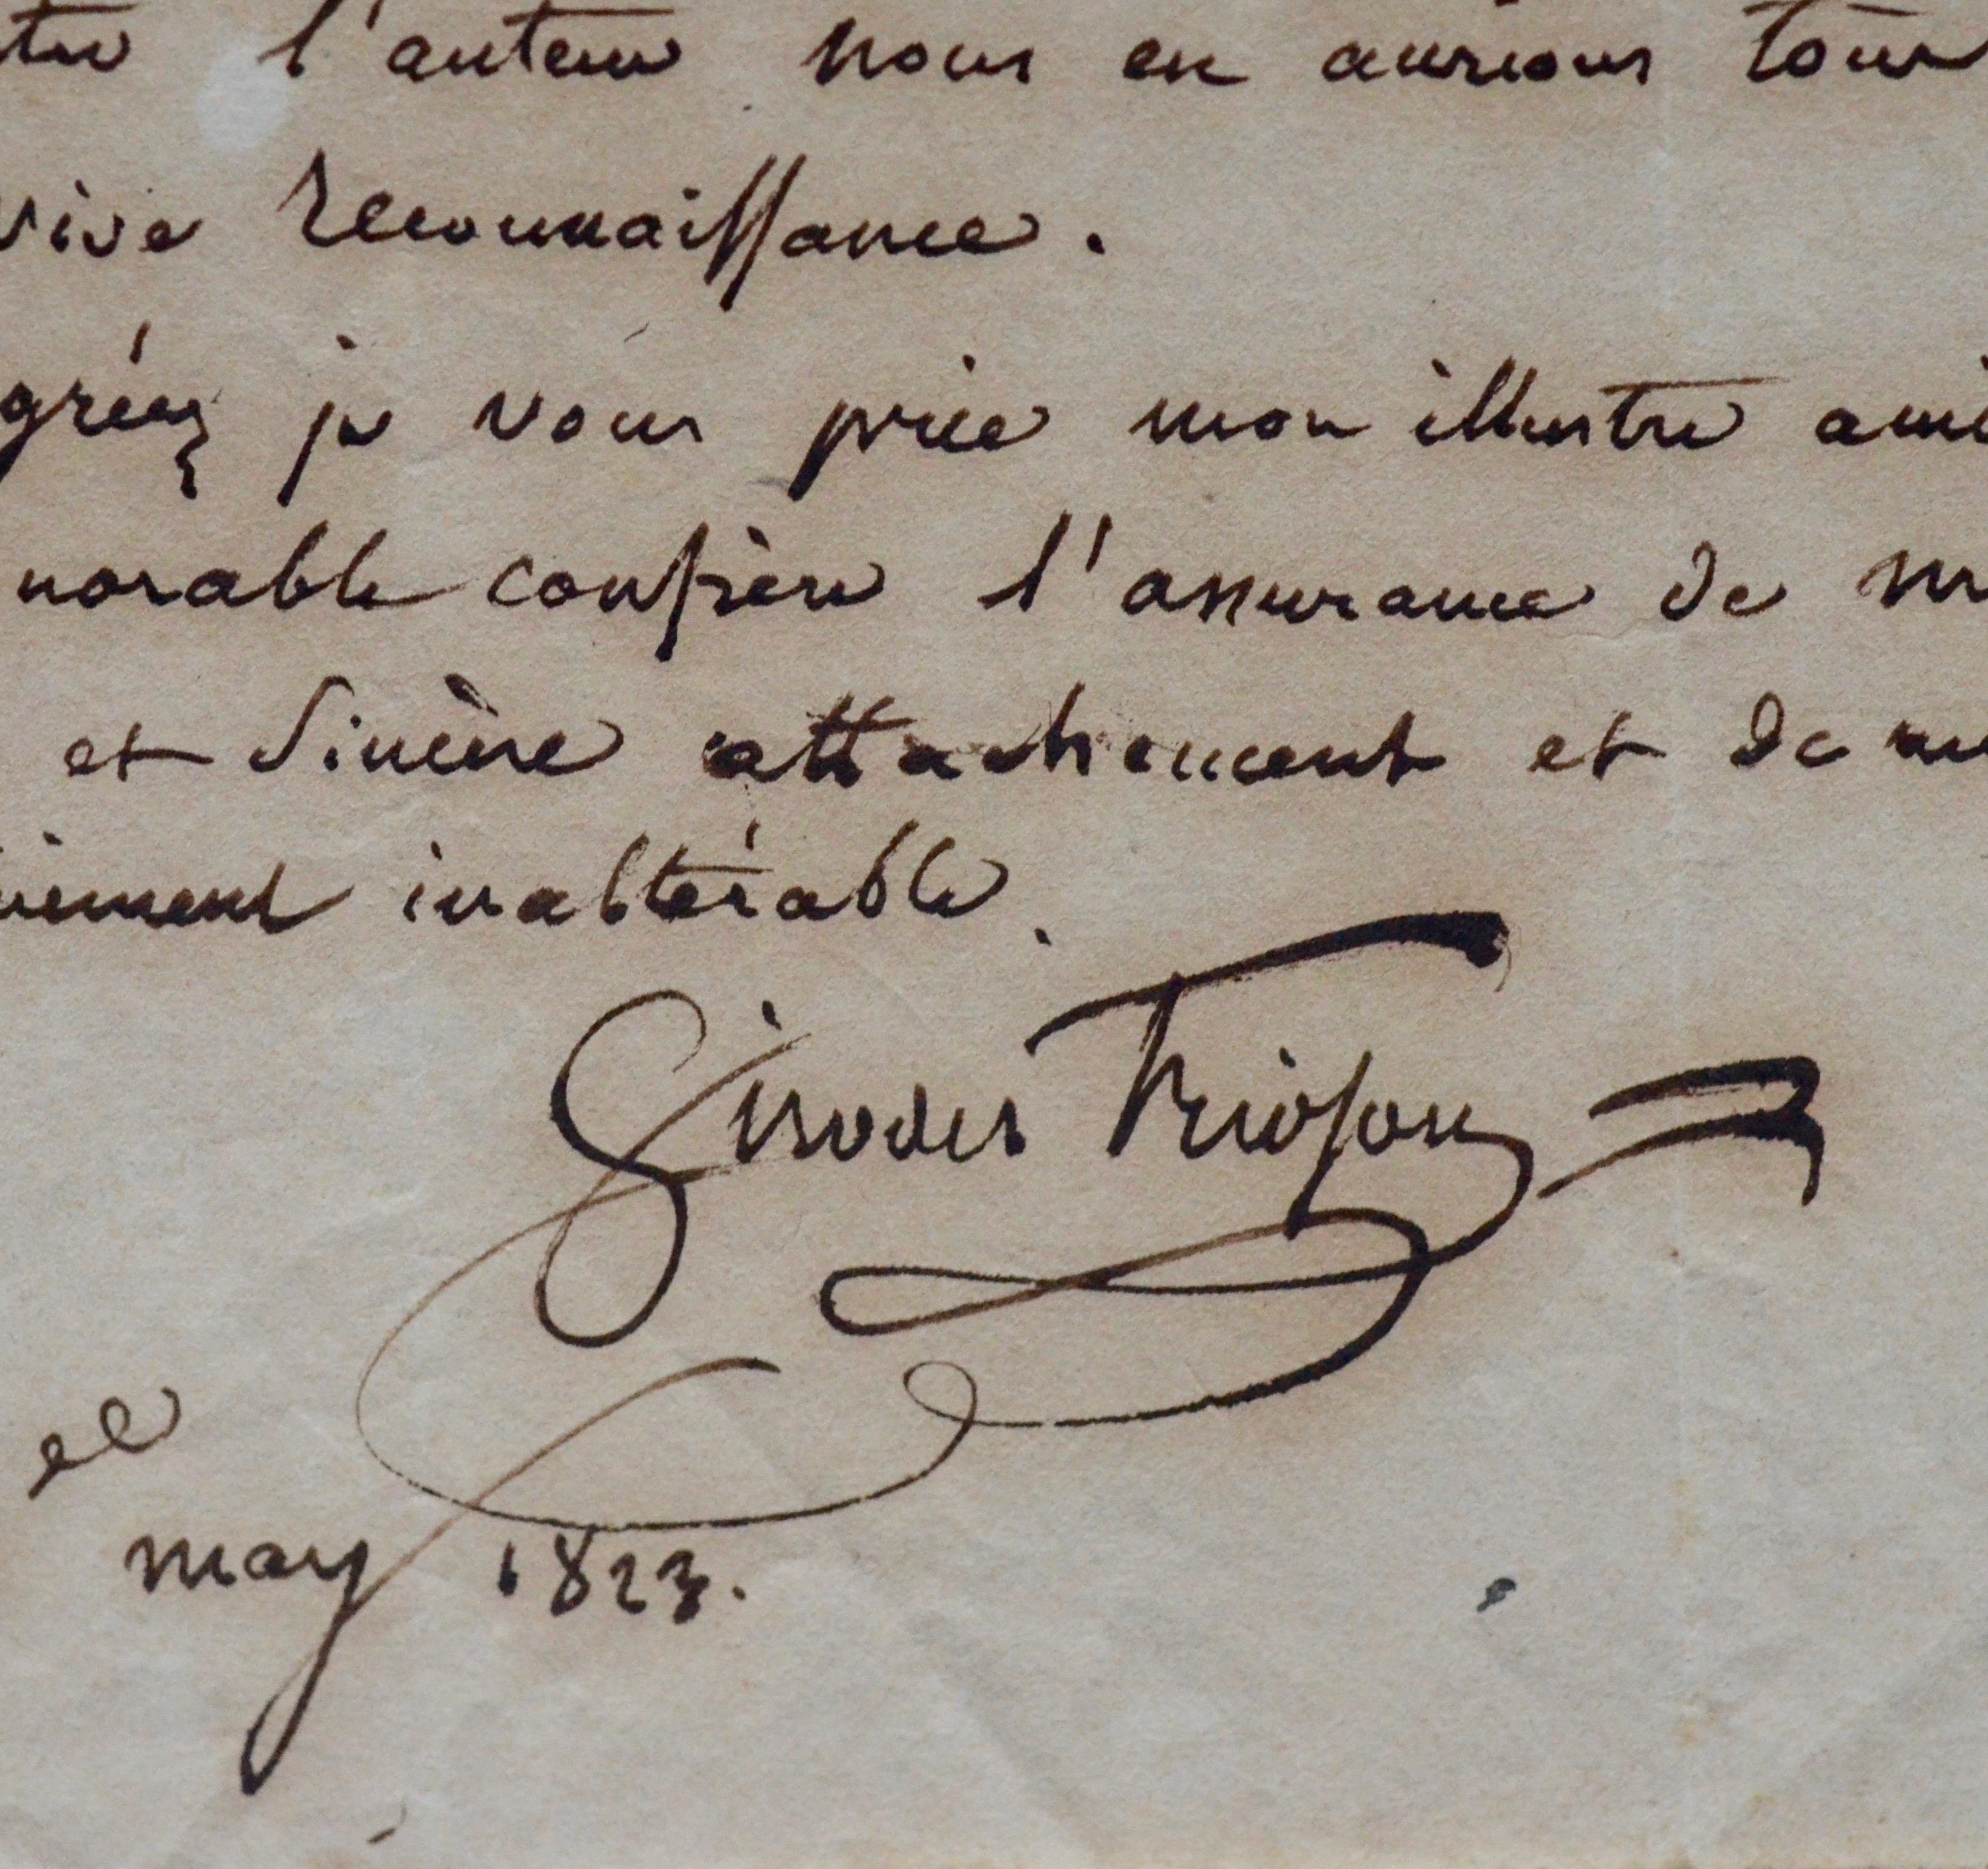 l'auteur nous en aurions tous
vive reconnaissance.
gréez je vous prie mon illustre ami
norable confrère l'assurance de m
et sincère attachement et de m
inaltérable.
Girodet Trioson
may 1823.